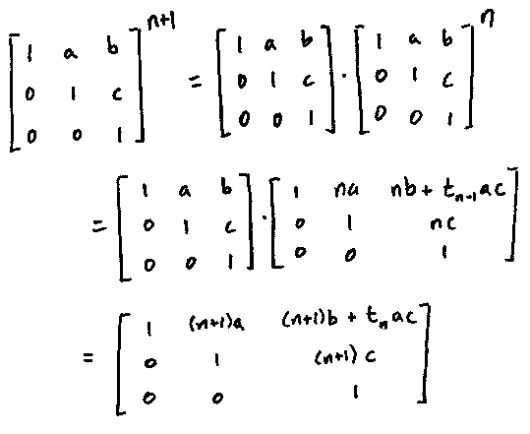 [1 a b; 0 1 c; 0 0 1]^{n+1} = [1 a b; 0 1 c; 0 0 1] · [1 a b; 0 1 c; 0 0 1]^n
= [1 a b; 0 1 c; 0 0 1] · [1 na nb + t_{n-1} ac; 0 1 nc; 0 0 1]
= [1 (n+1)a (n+1)b + t_n ac; 0 1 (n+1)c; 0 0 1]